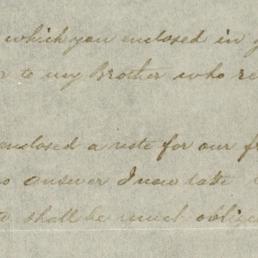 which you enclosed in
to my Brother who re
enclosed a note for our f
answer I now take
shall be much oblige